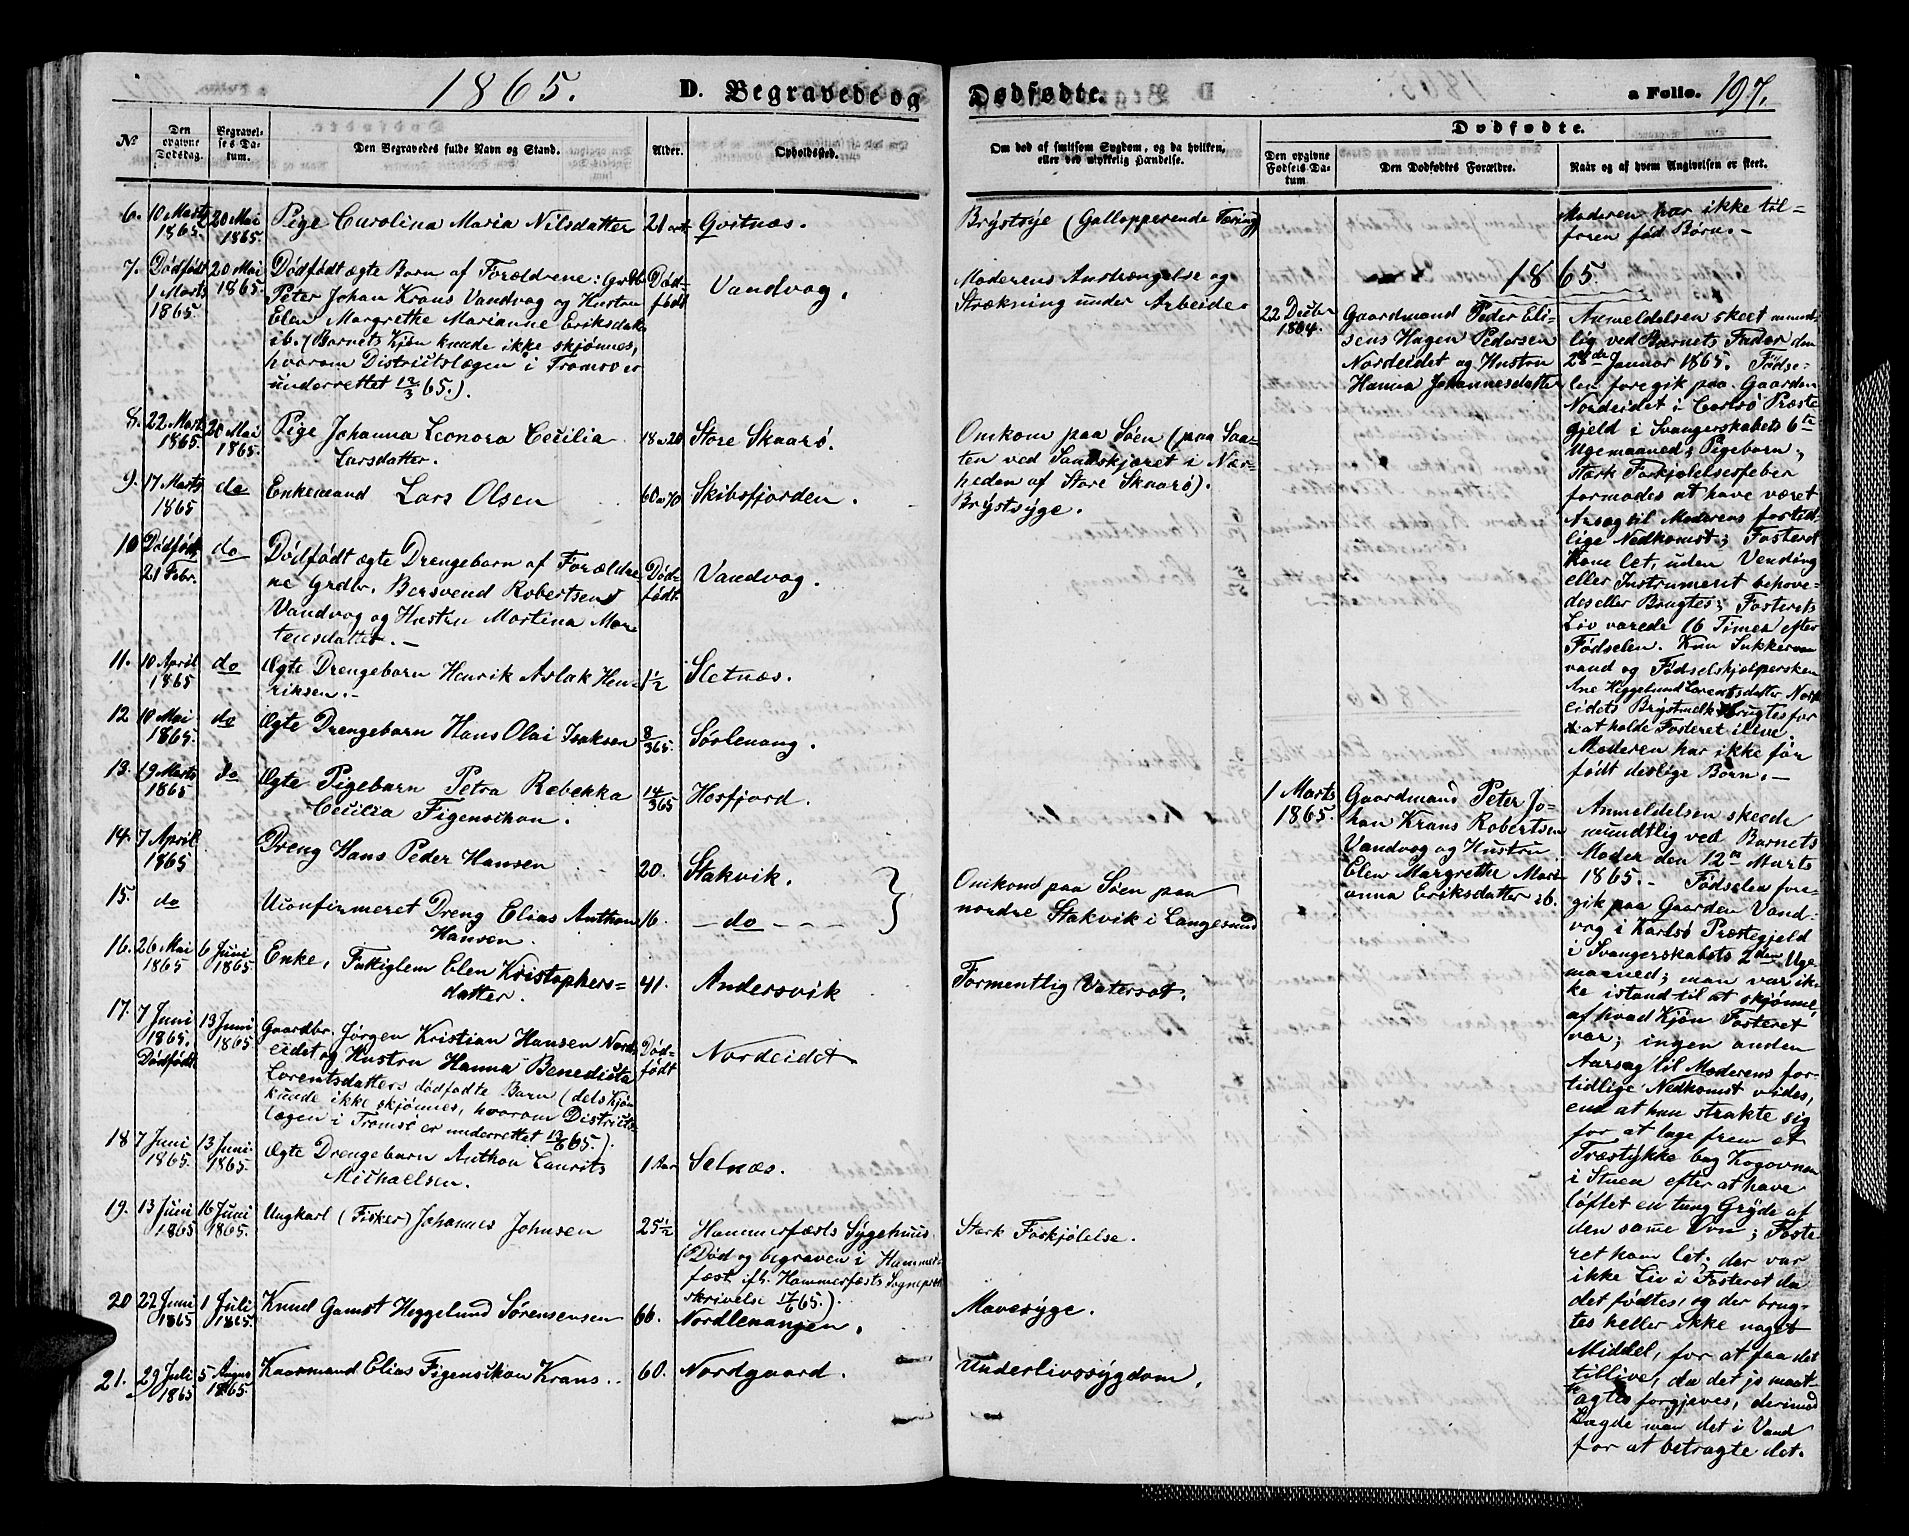 1865.
D. Begravede og
Dødfødte.
a Folio. 197.
№
Den opgivne Dødsdag.
Begravelses Datum.
Den Begravedes fulde Navn og Stand.
Alder.
Opholdssted.
Om død af smitsom Sygdom, og da hvilken,
eller ved ulykkelig Hændelse.
Dødfødte.
Den opgivne Fødsels Datum
Den Dødfødtes Forældre.
Naar og af hvem Angivelsen er skeet.
6. 10 Marts 1865 20 Mai 1865. Pige Carolina Maria Nilsdatter 21 Gvitnæs.
7. Dødfødt 1 Marts 1865 20 Mai 1865. Dødfødt ægte Barn af Forældrene: Grdbr.
Peter Johan Krans Vandvog og Hustru
Elen Margrethe Marianne Eriksdatter
ib. (Barnets Kjøn kunde ikke skjønnes,
hvorom Districtslægen i Tromsø er
underrettet 12/3 65.).
Dødfødt Vandvog.
8. 22 Marts 1865 20 Mai 1865. Pige Johanna Leonora Cecilia
Larsdatter.
18 a 20 Store Skaarø.
9. 17 Marts 1865 do Enkemand Lars Olsen 60 a 70 Skibsfjorden.
10 Dødfødt 21 Febr. do Dødfødt ægte Drengebarn af Forældre
ne Grdbr. Bersvend Robertsen
Vandvog og Hustru Martina Mor
tensdatter. -
Dødfødt. Vandvog.
11. 10 April 1865 do Ægte Drengebarn Henrik Aslak Hen-
riksen. -
1½ Sletnæs.
12 10 Mai 1865. do Ægte Drengebarn Hans Olai Isaksen 8/365. Sørlenang.
13. 19 Marts 1865 do Ægte Pigebarn Petra Rebekka
Cecilia Figenschou.
14/365 Hesfjord.
14. 7 April 1865 Dreng Hans Peder Hansen 20. Stakvik.
15. do Uconfirmeret Dreng Elias Anthon
Hansen.
16. - do - - -
16. 26 Mai 1865 6 Juni 1865 Enke, Fattiglem Elen Kristophers=
datter.
41. Andersvik
17. 7 Juni 1865. Dødfødt 13 Juni 1865 Gaardbr. Jørgen Kristian Hansen Nord
eidet og Hustru Hanna Benedicta
Lorentsdatters dødfødte Barn (dets Kjøn
kunde ikke skjønnes, hvorom Districts-
lægen i Tromsø er underrettet 13/6 65.).
Dødfødt Nordeidet
18 7 Juni 1865. 13 Juni 1865. Ægte Drengebarn Anthon Laurits
Michaelsen.
1 Aar Selnæs.
19. 13 Juni 1865 16 Juni 1865. Ungkarl (Fisker) Johannes Johnsen 25½ Hammerfæsts Sygehuus.
(Død og begraven i Hammer-
fæst ifl. Hammerfæsts Sognepræst
skrivelse 17/6 65.).
20 22 Juni 1865 1 Juli 1865. Knud Gamst Heggelund Sørensensen 66. Nordlenangen.
21. 29 Juli 1865 5 August 1865. Kaarmand Elias Figenschou Krans.. 60. Nordgaard.
Brystsyge (Gallopperende Tæring)
Moderens Anstrængelse og
Strækning under Arbeide
Omkom paa Søen (paa Saa-
ten ved Sandskjæret i Nær-
heden af Store Skaarø).
Brystsyge.
Omkom paa Søen paa
nordre Stakvik i Langesund
Formentlig Vatersot.
Stærk Forkjølelse.
Mavesyge.
Underlivssygdom.
22 Decbr 1864.
Gaardmand Peder Eli-
sens Hagen Pedersen
Nordeidet og Hustru
Hanna Johannesdatter
1 Marts 1865.
Gaardmand Peter Jo-
han Krans Robertsen
Vandvog og Hustru
Elen Margrethe Mari
anna Eriksdatter ib.
Moderen har ikke til=
foren fød Børn. -
1865.
Anmeldelsen skeet mundt
lig ved Barnets Fader den
28de Januar 1865. Fødse-
len foregik paa Gaarden
Nordeidet i Carlsø Præste
gjeld i Svangerskabets 6te
Ugemaaned; Pigebarn;
stærk Forkjølelsesfeber
formodes at have været
Aarsag til Moderens fortid
lige Nedkomst; Fosteret
kom let, uden Vending
eller Instrumeret behøve-
des eller Brugtes; Fosterets
Liv varede 16 Timer efter
Fødselen. Kun Sukker
vand og Fødselshjelpersken
Ane Heggelund Lorentsdatter Nord
eidets Brystmelk brugtes for
at holde Fosteret ilive.
Moderen har ikke før
født deslige Børn. -
Anmeldelsen skeede
mundtlig ved Barnets
Moder den 12te Marts
1865. - Fødselen fore-
gik paa Gaarden Vand-
vog i Karlsø Præstegjeld
i Svangerskabets 2den Uge
maaned; man var ik-
ke istand til at skjønne,
af hvad Kjøn Fosteret
var; ingen anden
Aarsag til Moderens for-
tidlige Nedkomst vides,
end at hun strakte sig
for at tage frem et
Træstykke bag Kogovnen
i Stuen efter at have
løftet en tung Gryde af
den samme Ovn; Foste-
ret kom let; der var
ikke Liv i Fosteret da
det fødtes, og der brug-
tes heller ikke noget
Middel, for at faa det
tillive, da det jo maat-
agtes forgjæves, derimod
Lagde man det i Vand
for at betragte det.